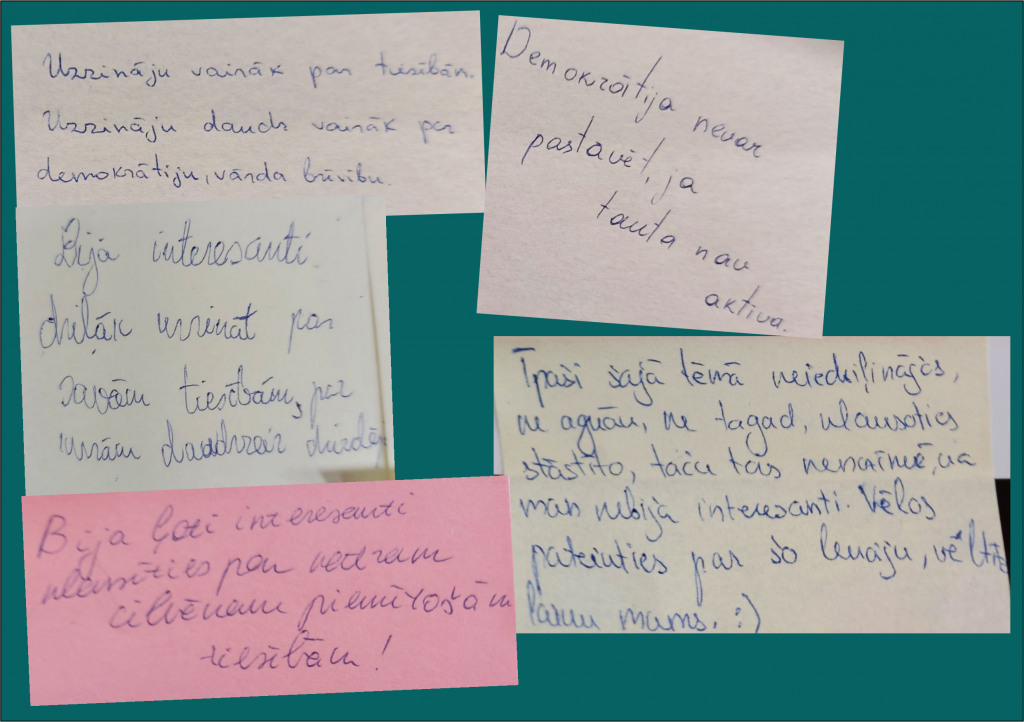 Uzzināju vairāk par tiesībām.
Uzzināju daudz vairāk par
demokrātiju, vārda brīvību.
Demokrātija nevar
pastāvēt, ja
tauta nav
aktīva.
Bija interesanti
dziļāk uzzināt par
savām tiesībām, par
kurām daudzreiz
Īpaši šajā tēmā neiedziļinājos,
ne agrāk, ne tagad, klausoties
stāstīto, taču tas nenozīmē, ka
man nebija interesanti. Vēlos
pateikties par šo lekciju, vēltīto
laiku mums. :)
Bija ļoti interesanti
klausīties par katram
cilvēkam piemītošām
tiesībām!